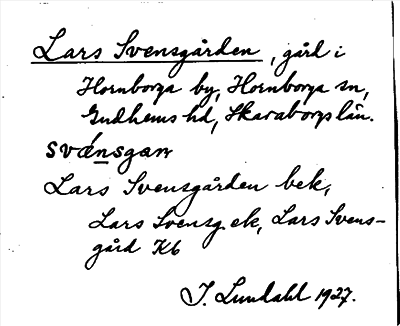 Lars Svensgården, gård i
Hornborga by, Hornborga sn,
Gudhems hd, Skaraborgs län.
svénsgaṛ
Lars Svensgården bek,
Lars Svensg ek, Lars Svens-
gård Kb
I. Lundahl 1927.